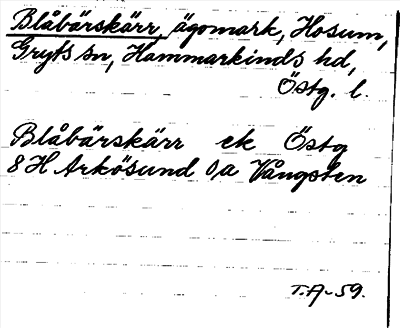 Blåbärskärr, ägomark, Hosum,
Gryts sn, Hammarkinds hd,
Östg. l.
Blåbärskärr ek Östg
8 H Arkösund 0/a Vångsten
T.A-59.